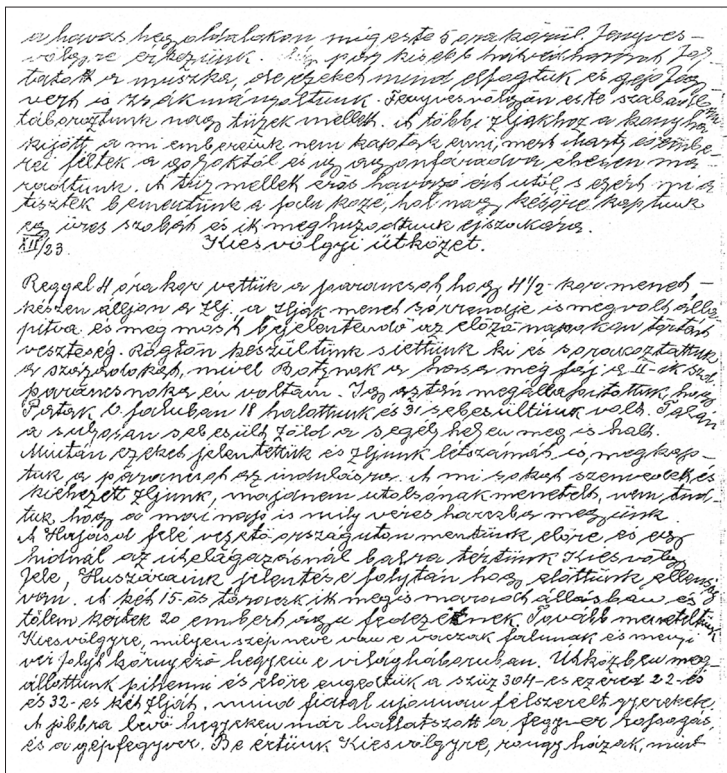 a havas hegyoldalakon míg este 5 óra körül Fenyves-
völgyre érkeztünk. Még pár kisebb hátvédharcot foly-
tatott a muszka, de ezeket mind elfogtuk és gépfegy-
vert is zsákmányoltunk. Fenyvesvölgyön este szabadban
táboroztunk nagy tüzek mellett. A többi zljakhoz a konyha
kijött, a mi embereink nem kaptak enni, mert Charty és embe-
rei féltek a golyóktól és így agyonfáradva éhesen ma-
radtunk. A tűz mellett erős havazó ért utól, s ezért mi a
tisztek bementünk a falu közé, hol nagy későre kaptunk
egy üres szobát és itt meghúzódtunk éjszakára.
XII/23. Kiesvölgyi ütközet.
Reggel 4 órakor vettük a parancsot hogy 4 1/2-kor menet-
készen álljon a zlj, a zljak menet sorrendje is megvolt álla-
pítva és még most bejelentendő az előző napokon történt
veszteség. Rögtön készültünk siettünk ki és sorakoztattuk
a századokat, mivel Botznak a hasa még fáj a II-ik szd
parancsnoka én voltam. Így aztán megállapítottuk, hogy
Patak b. faluban 18 halottunk és 31 sebesültünk volt. Talán
a súlyosan sebesült Zöld a segélyhelyen meg is halt.
Miután ezeket jelentettük és zljunk létszámát is, megkap-
tuk a parancsot az indulásra. A mi sokat szenvedett és
kiéhezett zljunk, majdnem utolsónak menetelt, nem tud-
tuk, hogy a mai nap is mily véres harcba megyünk.
A Hajasd felé vezető országúton mentünk előre és egy
hídnál az útelágazásnál balra tértünk Kiesvölgy
felé, Huszáraink jelentése folytán hogy előttünk ellenség
van. A két 15-ös taracsk itt mégis maradt állásban és
tőlem kértek 20 embert úgy fedezetnek. Tovább meneteltünk
Kiesvölgyre, milyen szép neve van e vacak falunak és mennyi
vér folyt környező hegyein e világháborúban. Útközben meg-
állottunk pihenni és előre engedtük a szűz 304-es ezred 22-es
és 32-es két zlját. mind fiatal ujonnan felszerelt gyerekek.
A jobbra levő hegyeken már hallatszott a fegyver ropogás
és a gépfegyver. Beértünk Kiesvölgyre, rongy házak, mint